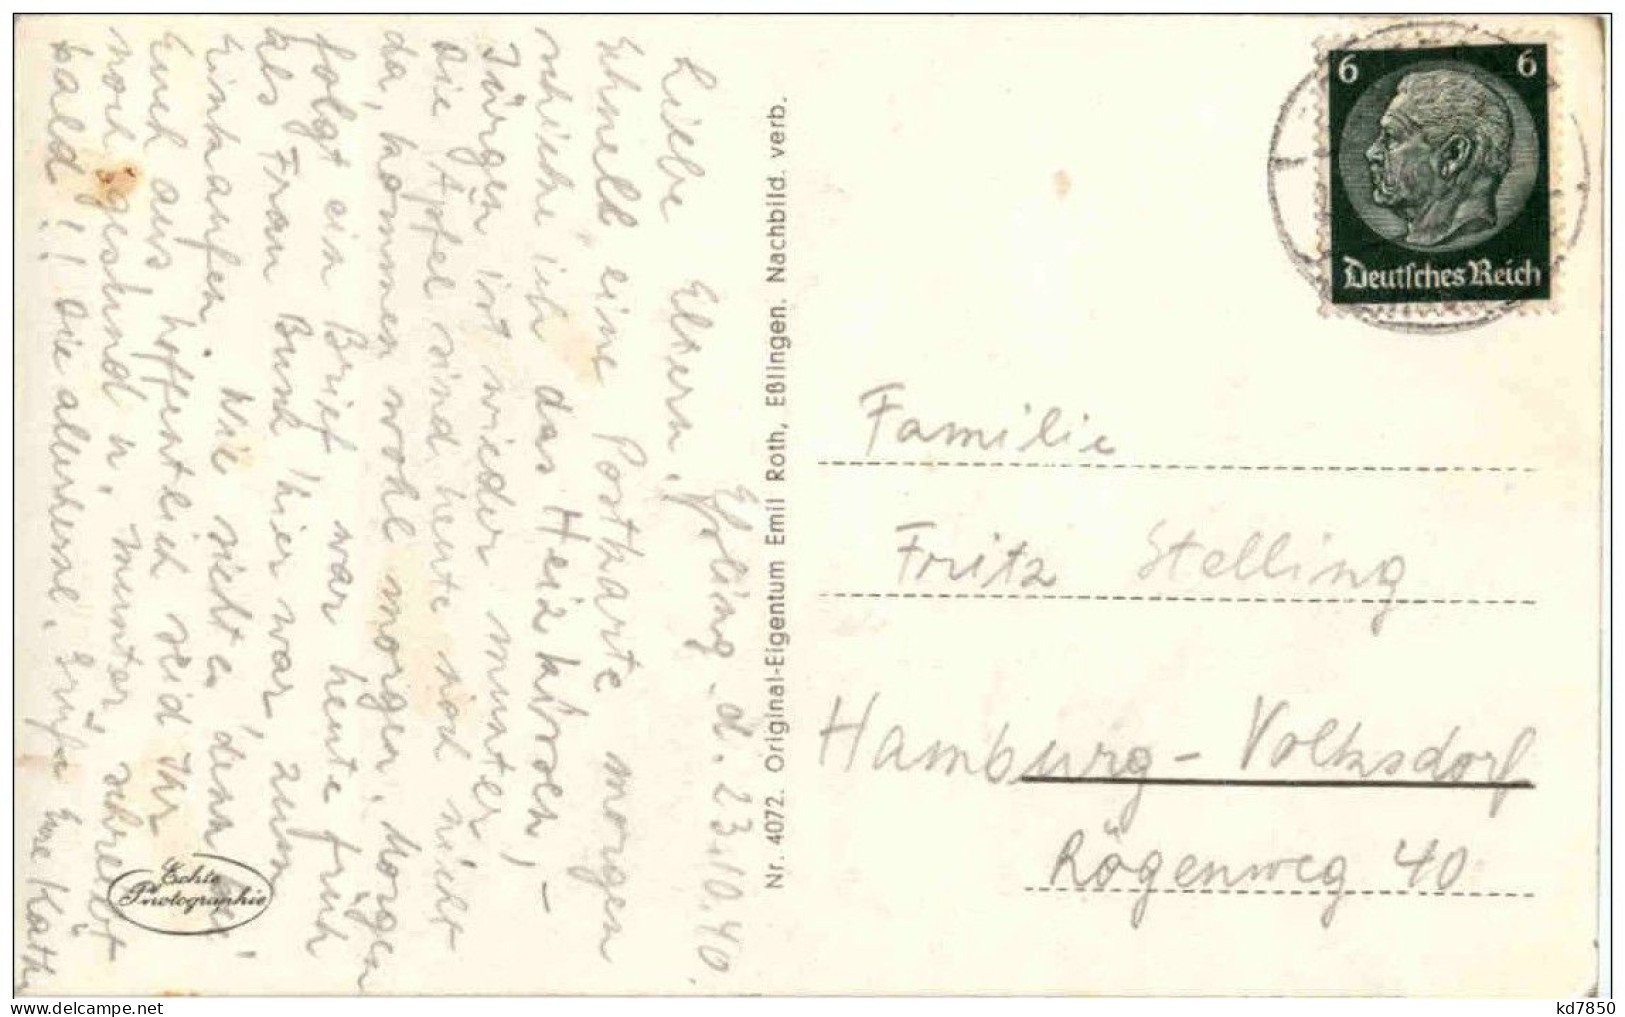 Eßling. d. 23.10.40.
Liebe Eltern.
Schnell eine Postkarte morgen
schicke ich das Heizkissen, –
Jürgen ist wieder munter
die Äpfel sind heute noch nicht
da, kommen wohl morgen. Morgen
folgt ein Brief war heute früh
als Frau Bunk hier war, zum
Einkaufen. Wie sieht es denn bei
Euch aus, hoffentlich seid Ihr
noch gesund u. munter, schreibt
bald!! Die allerbesten Grüße Eure Käthe
Echte
Photographie
Nr. 4072. Original-Eigentum Emil Roth, Eßlingen. Nachbild. verb.
6 6
Deutsches Reich
Familie
Fritz Stelling
Hamburg - Volksdorf
Rögenweg 40
kd7850